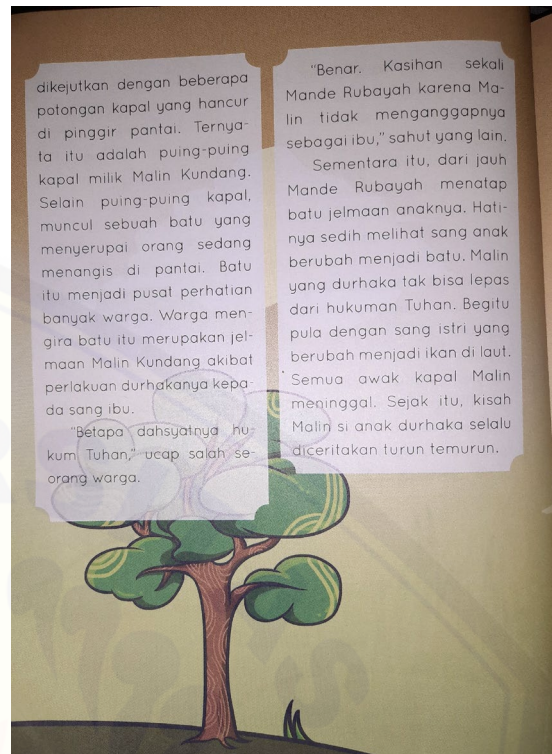 dikejutkan dengan beberapa
potongan kapal yang hancur
di pinggir pantai. Ternya-
ta itu adalah puing-puing
kapal milik Malin Kundang.
Selain puing-puing kapal,
muncul sebuah batu yang
menyerupai orang sedang
menangis di pantai. Batu
itu menjadi pusat perhatian
banyak warga. Warga men-
gira batu itu merupakan jel-
maan Malin Kundang akibat
perlakuan durhakanya kepa-
da sang ibu.
"Betapa dahsyatnya hu-
kum Tuhan," ucap salah se-
orang warga.
"Benar. Kasihan sekali
Mande Rubayah karena Ma-
lin tidak menganggapnya
sebagai ibu," sahut yang lain.
Sementara itu, dari jauh
Mande Rubayah menatap
batu jelmaan anaknya. Hati-
nya sedih melihat sang anak
berubah menjadi batu. Malin
yang durhaka tak bisa lepas
dari hukuman Tuhan. Begitu
pula dengan sang istri yang
berubah menjadi ikan di laut.
Semua awak kapal Malin
meninggal. Sejak itu, kisah
Malin si anak durhaka selalu
diceritakan turun temurun.